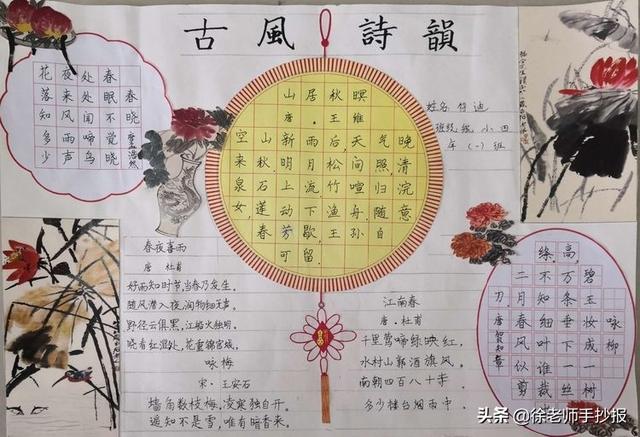 古風詩韻
春晓
孟浩然
春眠不觉晓
处处闻啼鸟
夜来风雨声
花落知多少
山居秋暝
唐·王维
空山新雨后天气晚
来秋明月松间照清
泉石上流竹喧归浣
女莲动下渔舟随意
春芳歇王孙自
可留
姓名
班级 级小四
年(一)班
春夜喜雨
唐 杜甫
好雨知时节,当春乃发生。
随风潜入夜,润物细无声。
野径云俱黑,江船火独明。
晓看红湿处,花重锦官城。
咏梅
宋·王安石
墙角数枝梅,凌寒独自开。
遥知不是雪,唯有暗香来。
江南春
唐·杜甫
千里莺啼绿映红,
水村山郭酒旗风。
南朝四百八十寺,
多少楼台烟雨中。
咏柳
唐贺知章
碧玉妆成一树高,
万条垂下一丝绦,
不知细叶谁裁
二月春风似剪刀,
头条 @徐老师手抄报